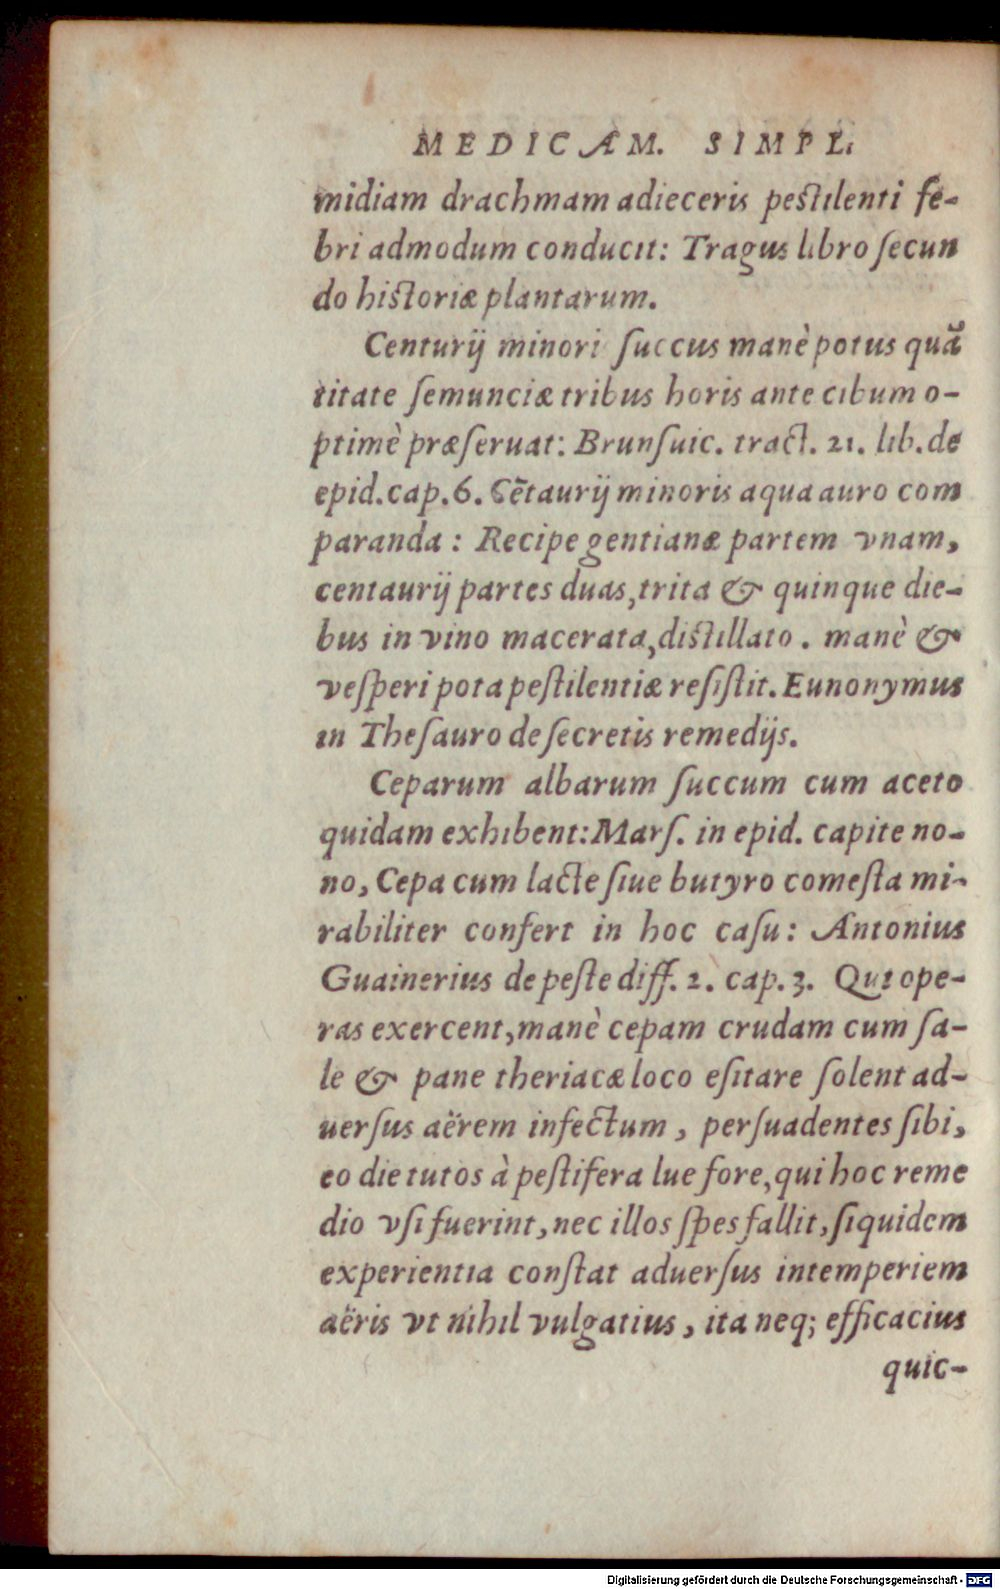 MEDICAM. SIMPL.
midiam drachmam adieceris pestilenti fe-
bri admodum conducit: Tragus libro ſecun
do historiæ plantarum.
Centurij minori ſuccus manè potus quã
titate ſemunciæ tribus horis ante cibum o-
ptimè præſeruat: Brunſuic. tract. 21. lib. de
epid. cap. 6. Cẽtaurij minoris aqua auro com
paranda : Recipe gentianæ partem vnam,
centaurij partes duas, trita & quinque die-
bus in vino macerata, distillato . manè &
veſperi pota peſtilentiæ reſiſtit. Eunonymus
in Theſauro de ſecretis remedijs.
Ceparum albarum ſuccum cum aceto
quidam exhibent: Marſ. in epid. capite no-
no, Cepa cum lacte ſiue butyro comeſta mi-
rabiliter confert in hoc caſu: Antonius
Guainerius de peſte diff. 2. cap. 3. Qui ope-
ras exercent, manè cepam crudam cum ſa-
le & pane theriacæ loco eſitare ſolent ad-
uerſus aërem infectum, perſuadentes ſibi,
eo die tutos à peſtifera lue fore, qui hoc reme
dio vſi fuerint, nec illos ſpes fallit, ſiquidem
experientia conſtat aduerſus intemperiem
aëris vt nihil vulgatius, ita neq; efficacius
quic-
Digitalisierung gefördert durch die Deutsche Forschungsgemeinschaft - DFG